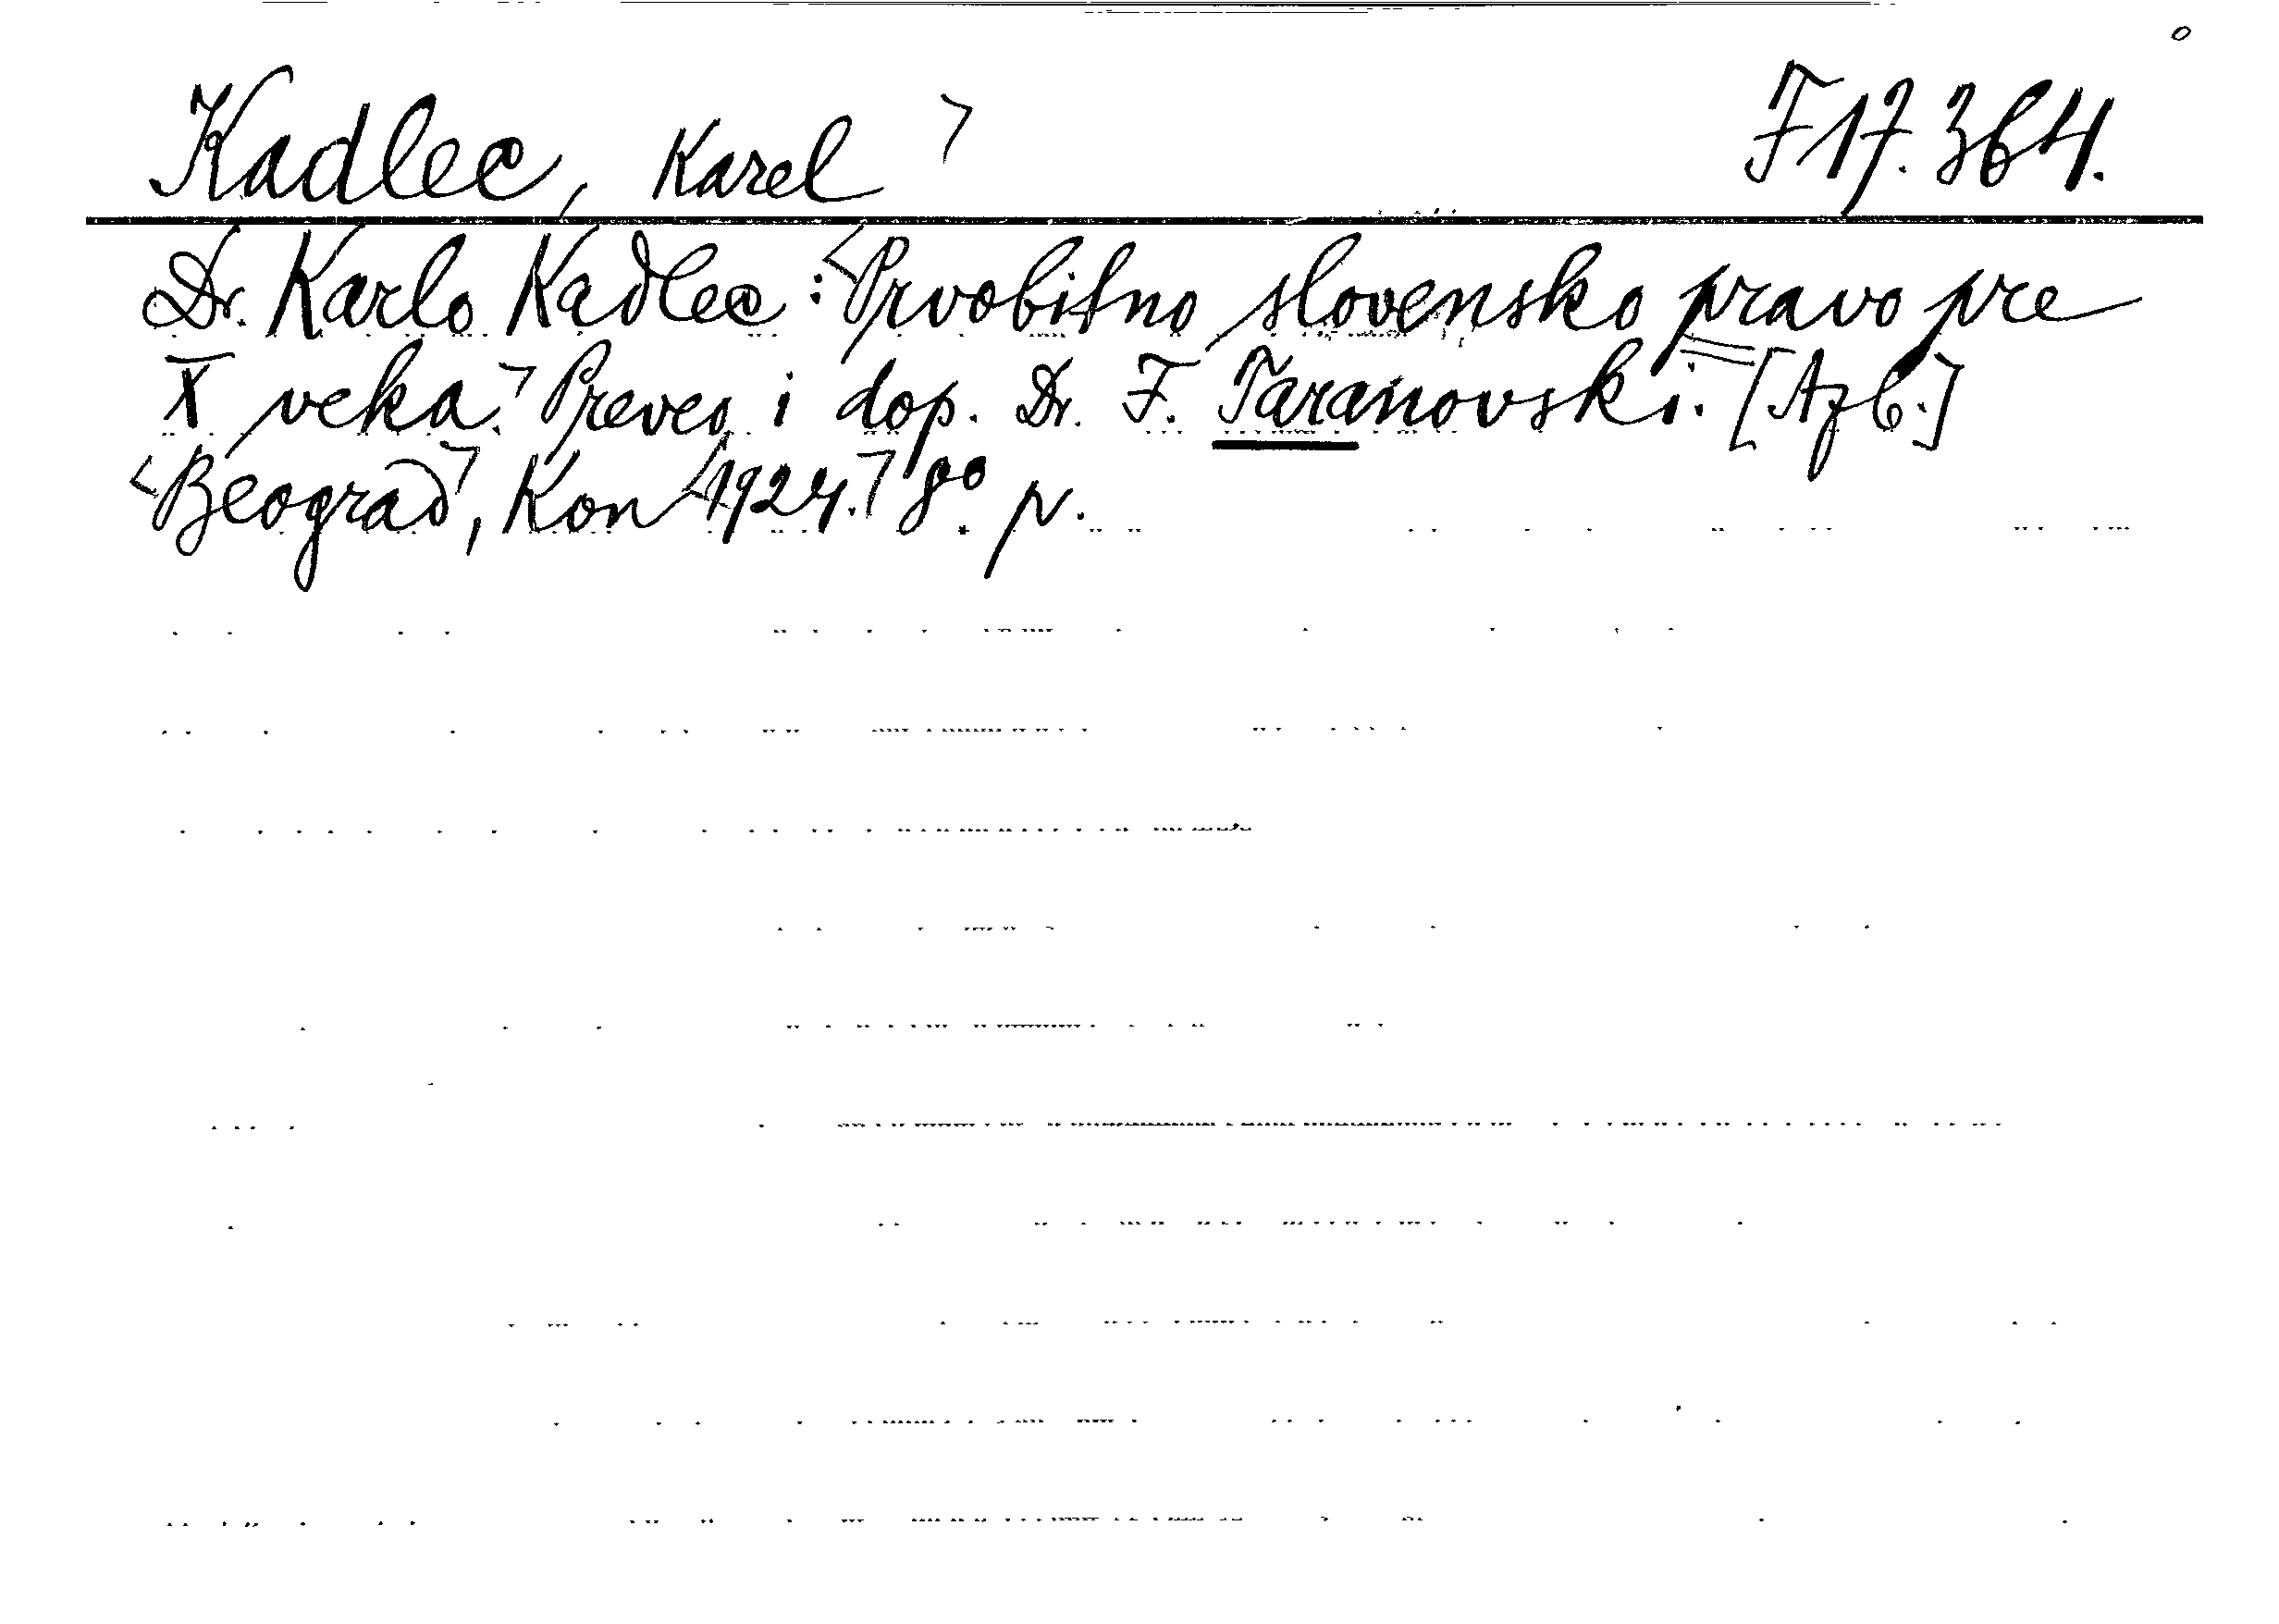 Kadlec, Karel ⌝ F 17.364.
Dr. Karlo Kadlec: <Prvobitno slovensko pravo pre
X veka.⌝ Preveo i dop. Dr. F. Taranovski. [Azb.]
<Beograd⌝, Kon <1924.⌝ 8° p.